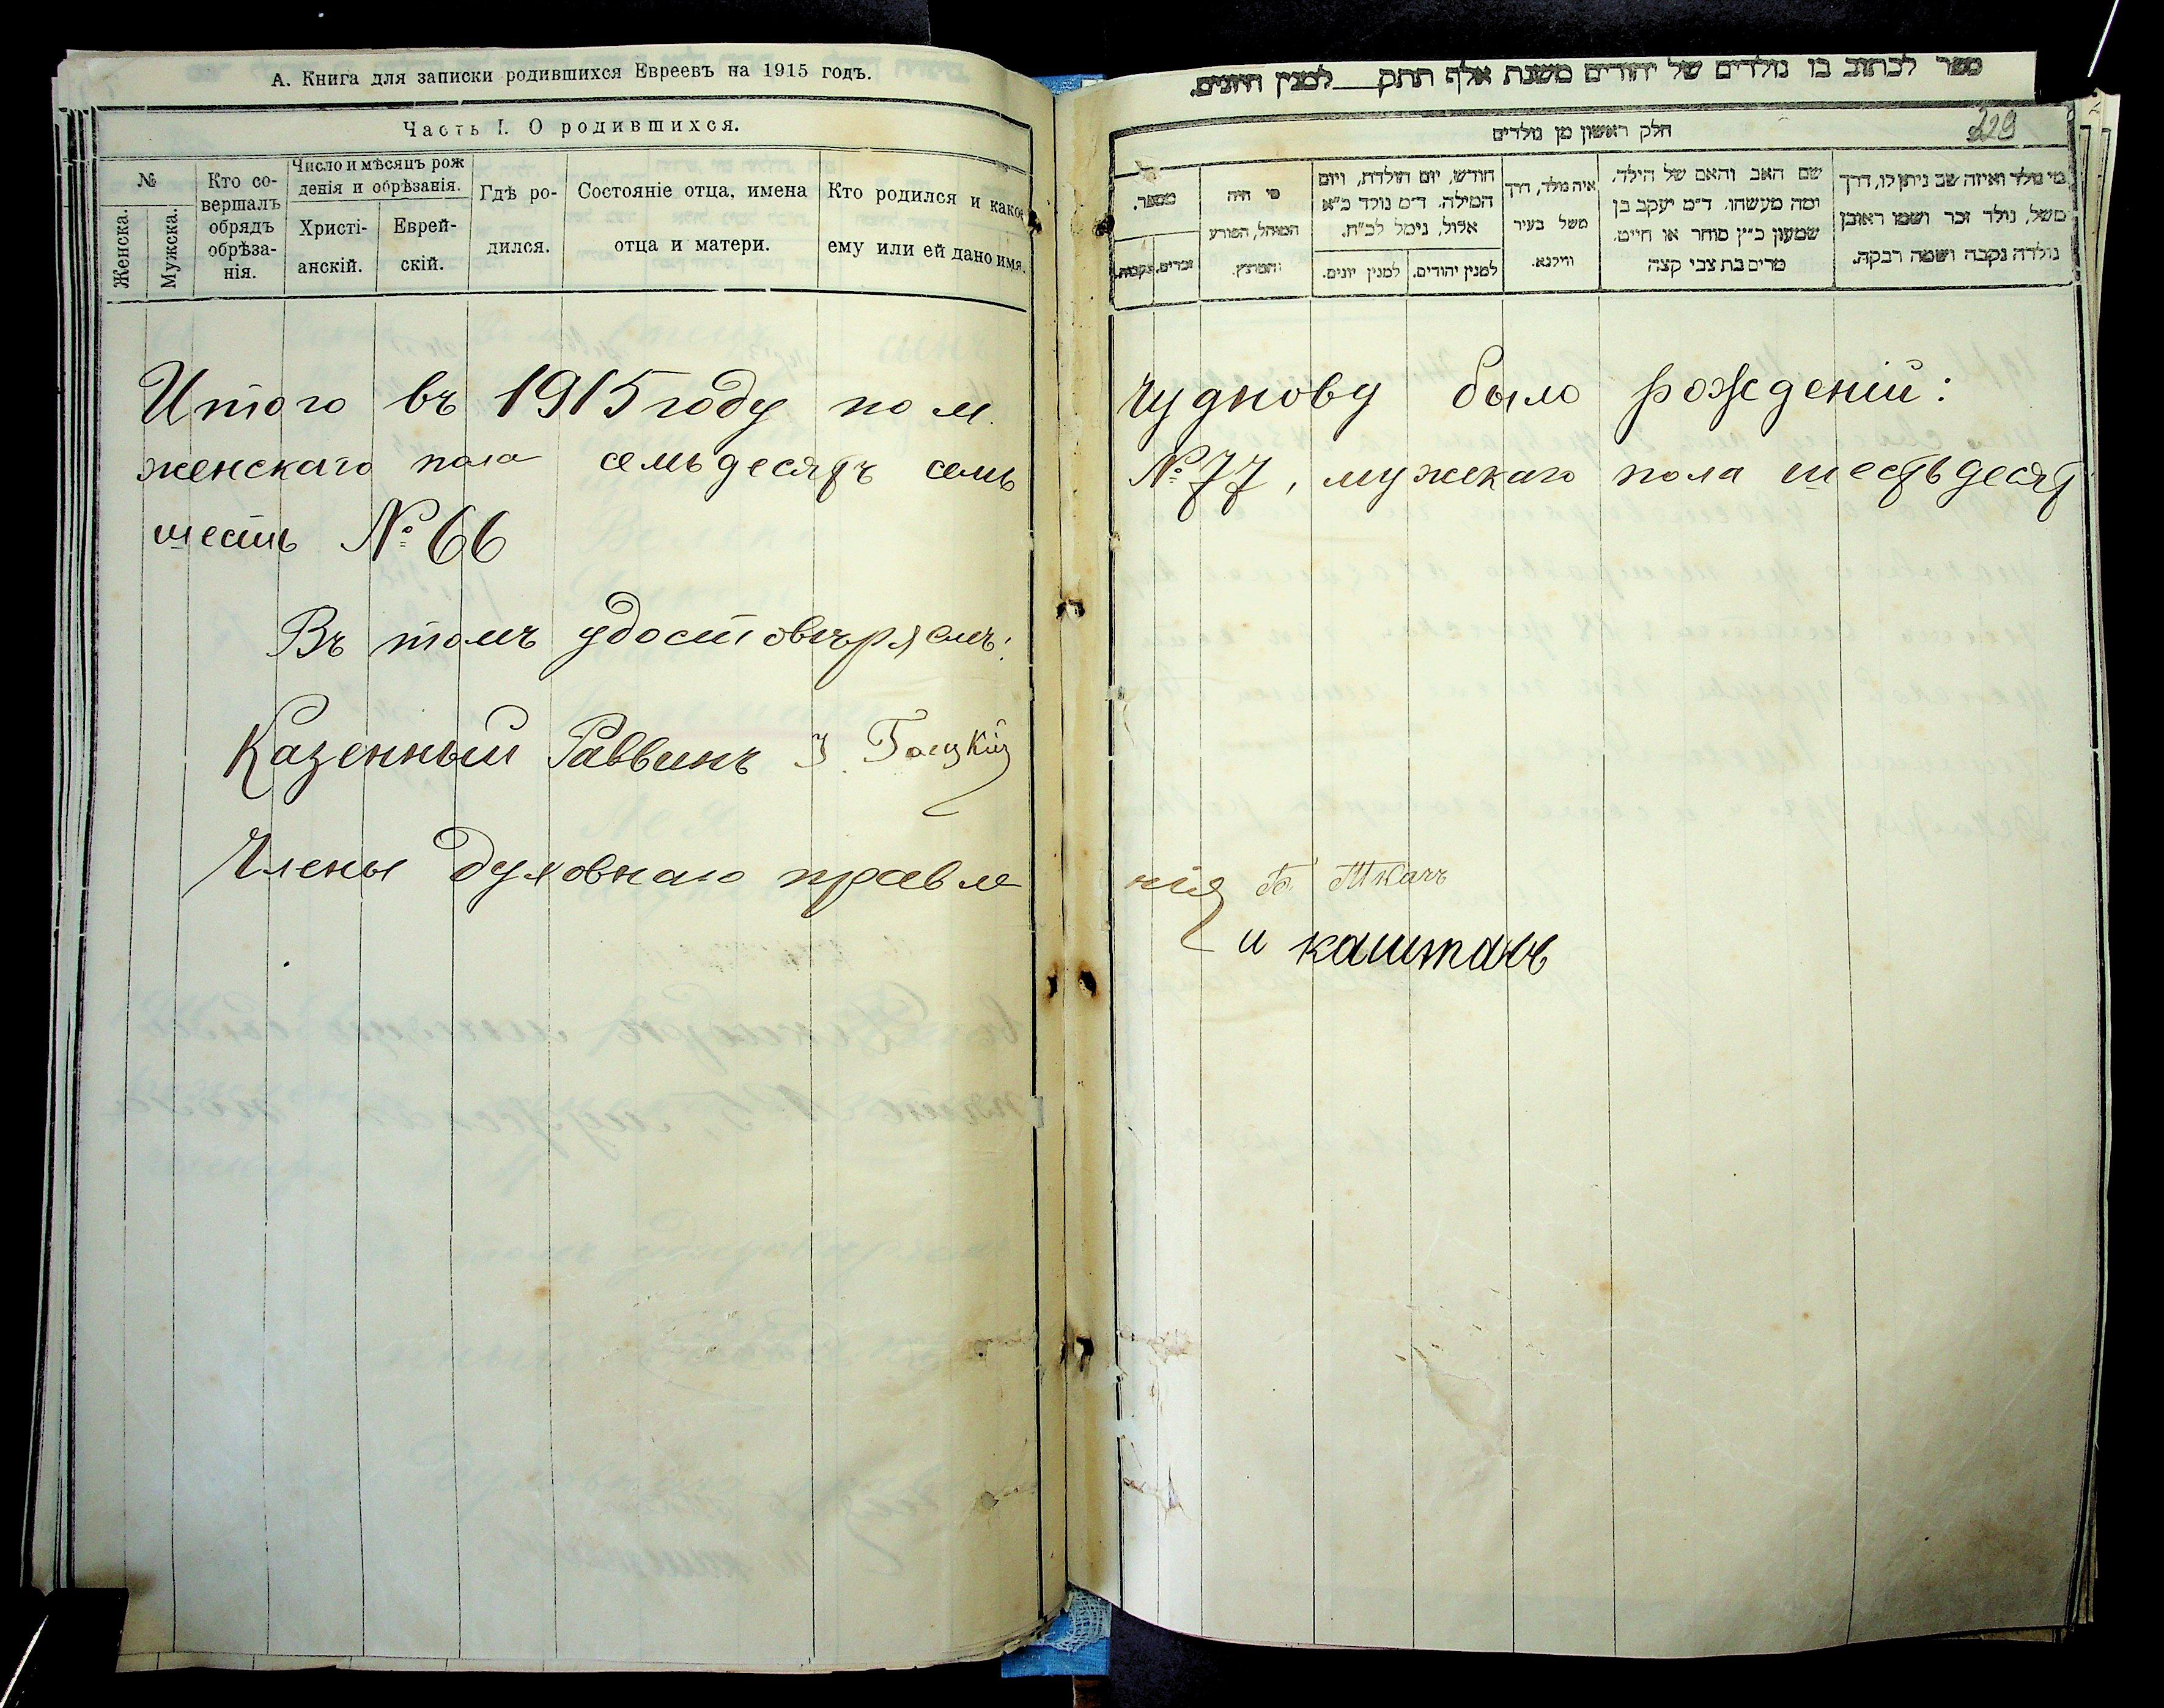 А. Книга для записки родившихся Евреевъ на 1915 годъ.
Часть I. О родившихся.
№
Женска.
Мужска.
Кто со-
вершалъ
обрядъ
обрѣза-
нія.
Число и мѣсяцъ рож
денія и обрѣзанія.
Христі-
анскій.
Еврей-
скій.
Гдѣ ро-
дился.
Состояніе отца, имена
отца и матери.
Кто родился и какое
ему или ей дано имя.
Итого въ 1915 году по м.
женскаго пола семьдесятъ семь
шесть № 66
Въ томъ удостовѣряемъ:
Казенный Раввинъ
Члены духовнаго правле
ספר לכתוב בו נולדים של יהודים משנת אלף תתק למנין היונים.
229
חלק ראשון מן נולדים
מספר.
נקבות.
זכרים.
מי היה
המוהל, הפורע
והמוצץ.
חודש, יום הולדת, ויום
המילה. ד״מ נולד כ״א
אלול, נימל לכ״ח.
למנין יונים.
למנין יהודים.
איה נולד, דרך
משל בעיר
ווילנא.
שם האב והאם של הילד.
ומה מעשהו. ד״מ יעקב בן
שמעון כ״ץ סוחר או חייט.
מרים בת צבי קצה
מי נולד ואיזה שם ניתן לו, דרך
משל, נולד זכר ושמו ראובן
נולדה נקבה ושמה רבקה.
Чуднову было рожденій:
№ 77, мужскаго пола шестьдесят
нія Б. Ткачъ
и каштанъ